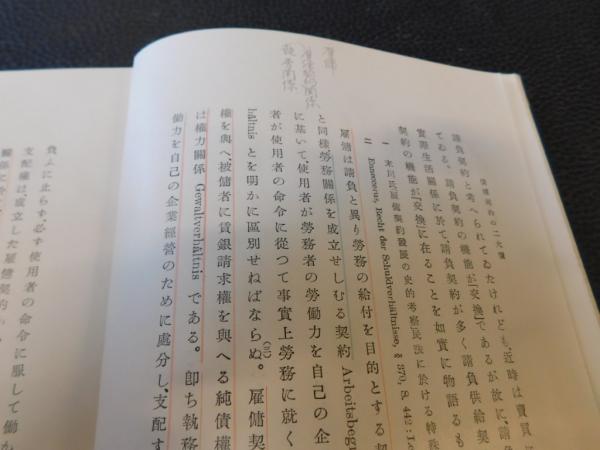 雇傭
雇傭契約關係
請負契約と考へられてゐたけれども、近時は賣買
てゐる。請負契約の機能が「交換」であるが故に、請負
實際生活關係に於て請負契約が多く請負供給契
契約の機能が「交換」に在ることを如實に物語るも
一 末川氏「雇傭契約發展の史的考察」民法に於ける特殊
二 Enneccerus, Recht der Schuldverhältnisse, § 370, S. 442; Le
雇傭は請負と異り勞務の給付を目的とする契
と同樣勞務關係を成立せしむる契約 Arbeitsbegr
に基いて、使用者が勞務者の勞働力を自己の企
者が使用者の命令に從つて事實上勞務に就く
hältnis とを明かに區別せねばならぬ。(三)雇傭契
權を與へ、被傭者に賃銀請求權を與へる純債權
は權力關係 Gewaltverhältnis である。卽ち執務
働力を自己の企業經營のために處分し、支配す
負ふに止らず、必ず使用者の命令に服して働か
支配權は、成立した雇傭契約か